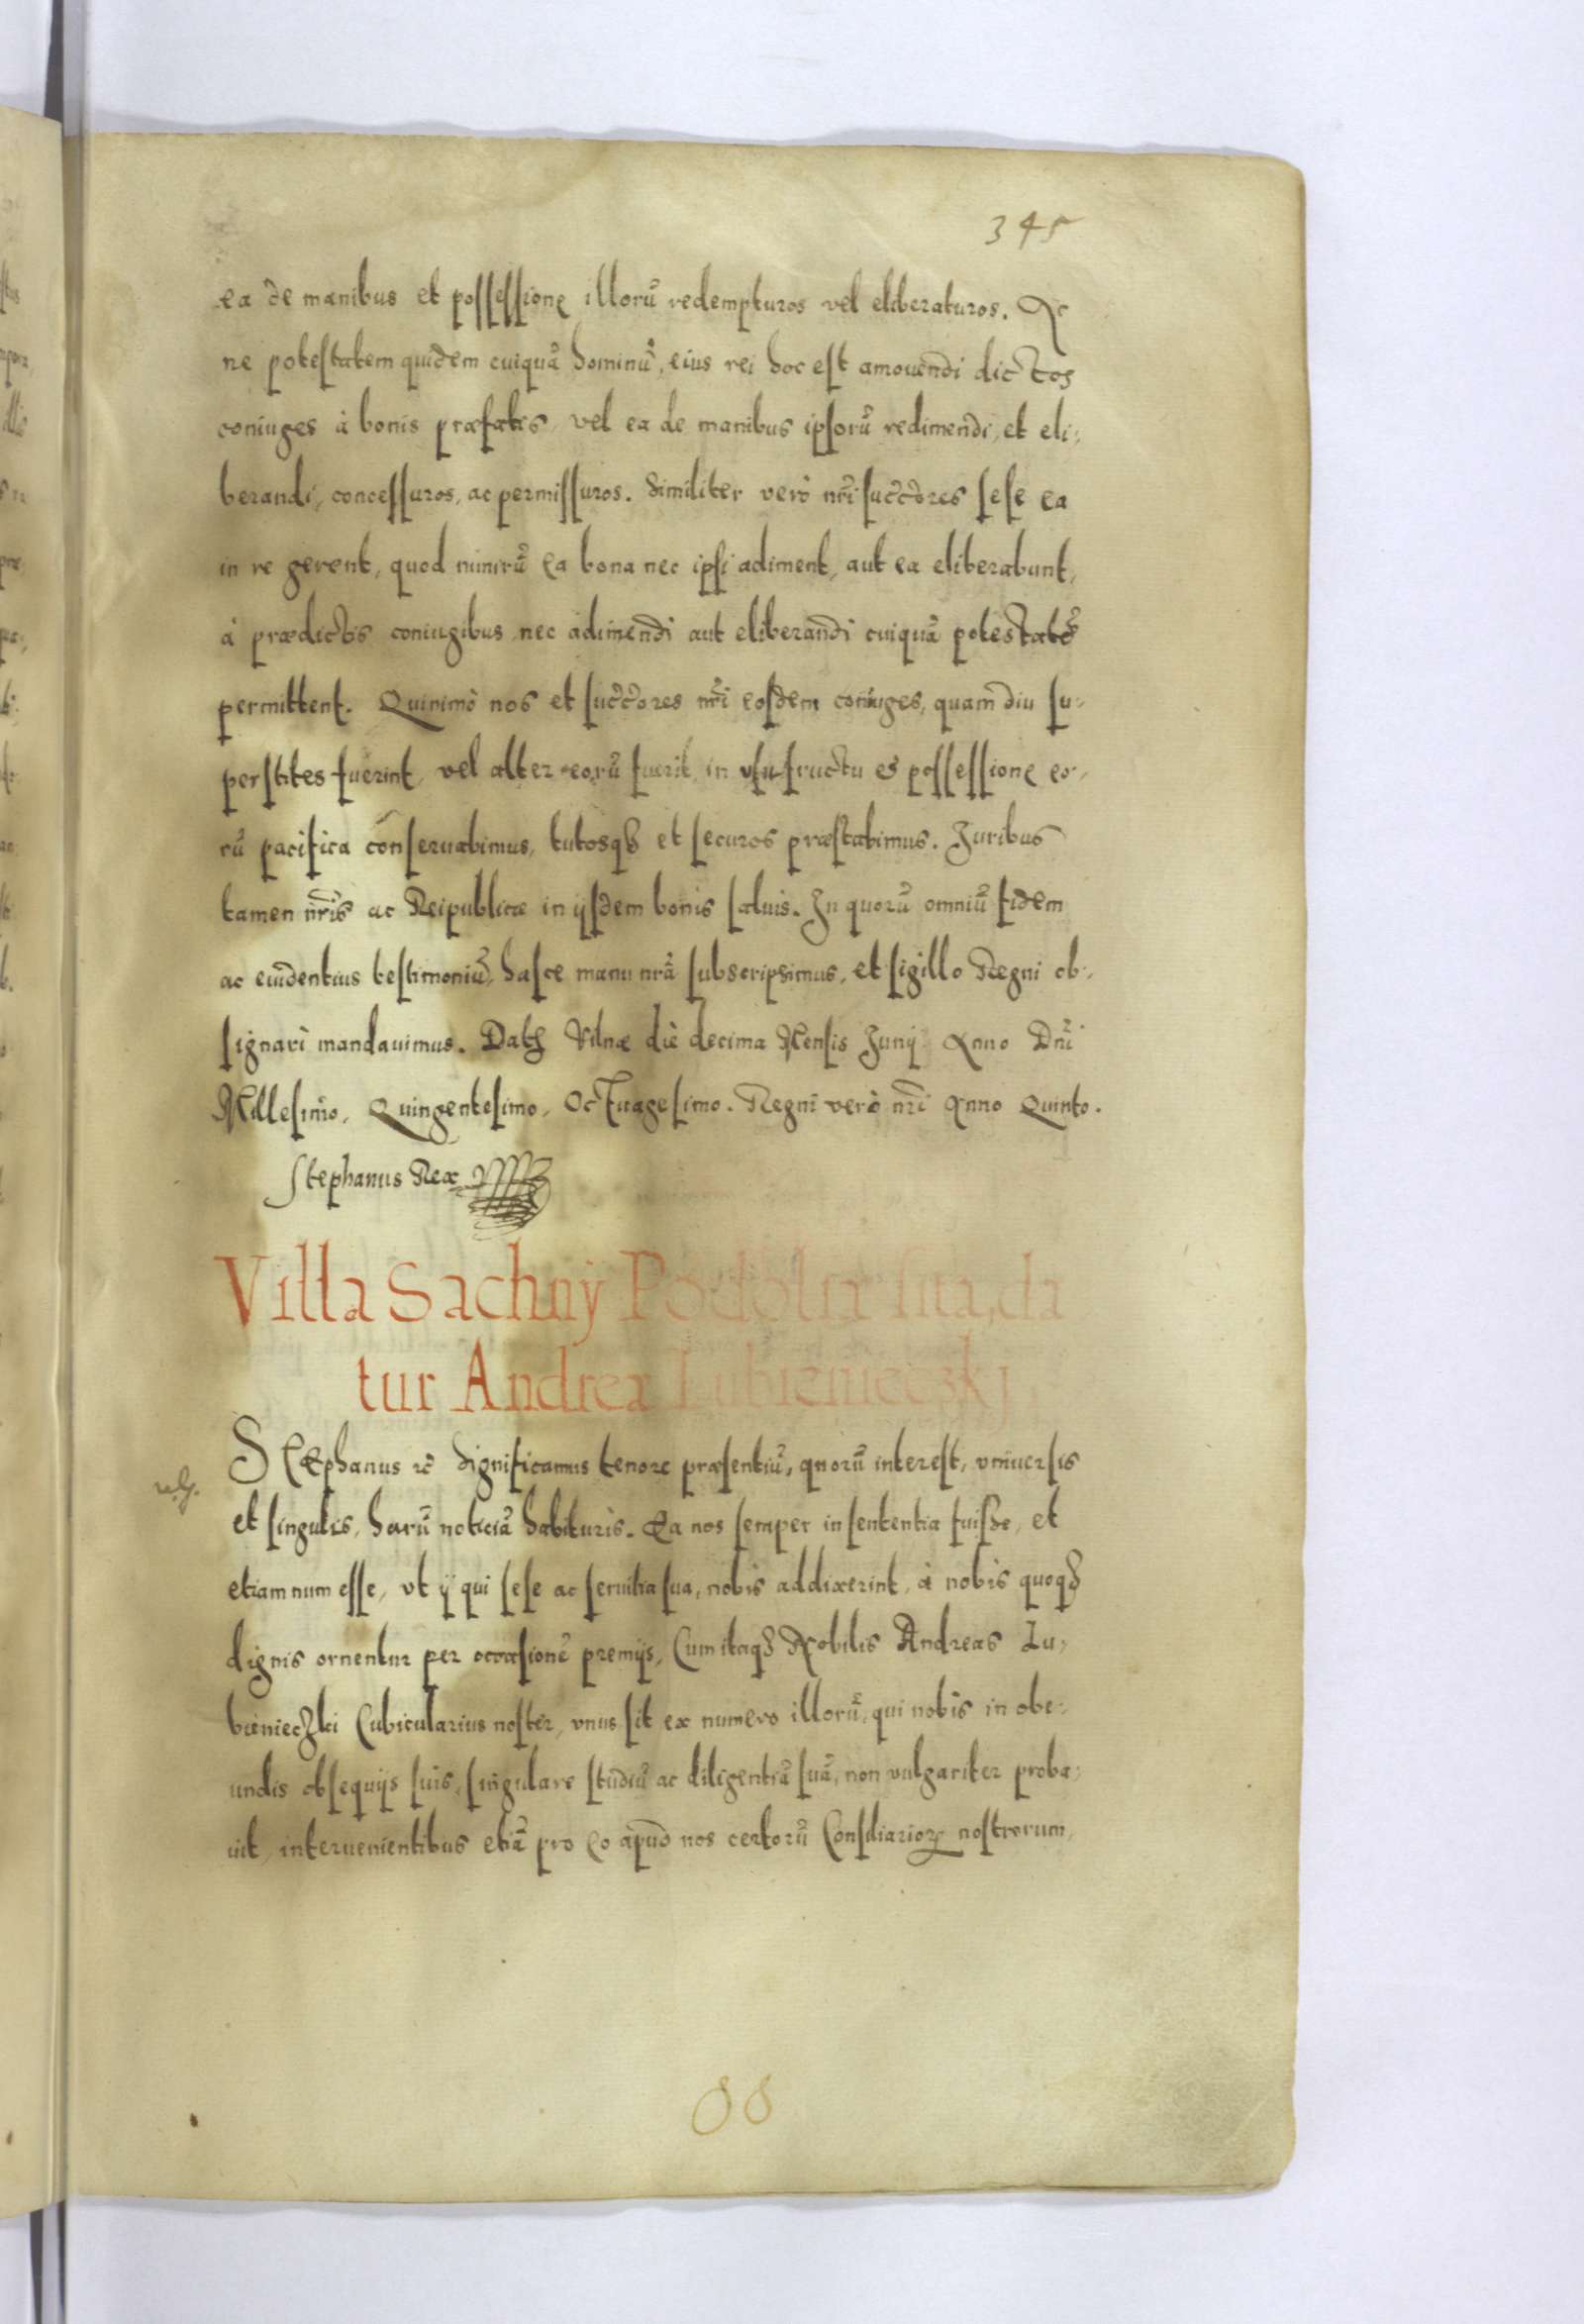 345
ea de manibus et possessione illorũ redempturos vel eliberaturos. Ac
ne potestatem quidem cuiquã hominũ, eius rei hoc est amouendi dictos
coniuges à bonis præfatis, vel ea de manibus ipsorũ redimendi, et eli-
berandi, concessuros, ac permissuros. Similiter verò nr̃i succ̃ores sese ea
in re gerent, quod nimirũ ea bona nec ipsi adiment, aut ea eliberabunt,
à prædictis coniugibus nec adimendi aut eliberandi cuiquã potestatẽ
permittent. Quinimò nos et succ̃ores nr̃i eosdem coniuges, quam diu su-
perstites fuerint, vel alter eorũ fuerit, in vsufructu et possessione eo-
rũ pacifica conseruabimus, tutosq3 et securos præstabimus. Juribus
tamen nr̃is ac Reipublicæ in ijsdem bonis saluis. In quorũ omniũ fidem
ac euidentius testimoniũ, hasce manu nr̃a subscripsimus, et sigillo Regni ob-
signari mandauimus. Dat3 Vilnæ die decima Mensis Junij Anno Dñi
Millesimo, Quingentesimo, Octuagesimo. Regni verò nr̃i Anno Quinto.
Stephanus Rex
Villa Sachny Podoliæ sita, da
tur Andreæ Lubienieczkj
Stephanus rc̃ Significamus tenore præsentiũ, quorũ interest, vniuersis
et singulis, harũ noticiã habituris. Ea nos semper in sententia fuisse, et
etiamnum esse, vt ij qui sese ac seruitia sua, nobis addixerint, à nobis quoq3
dignis ornentur per occasionẽ premijs, Cum itaq3 Nobilis Andreas Lu-
bienieczki Cubicularius noster, vnus sit ex numero illorũ, qui nobis in obe-
undis obsequijs suis, singulare studiũ ac diligentiã suã, non vulgariter proba-
uit, interuenientibus etiã pro eo apud nos certorũ Consiliarior nostrorum,